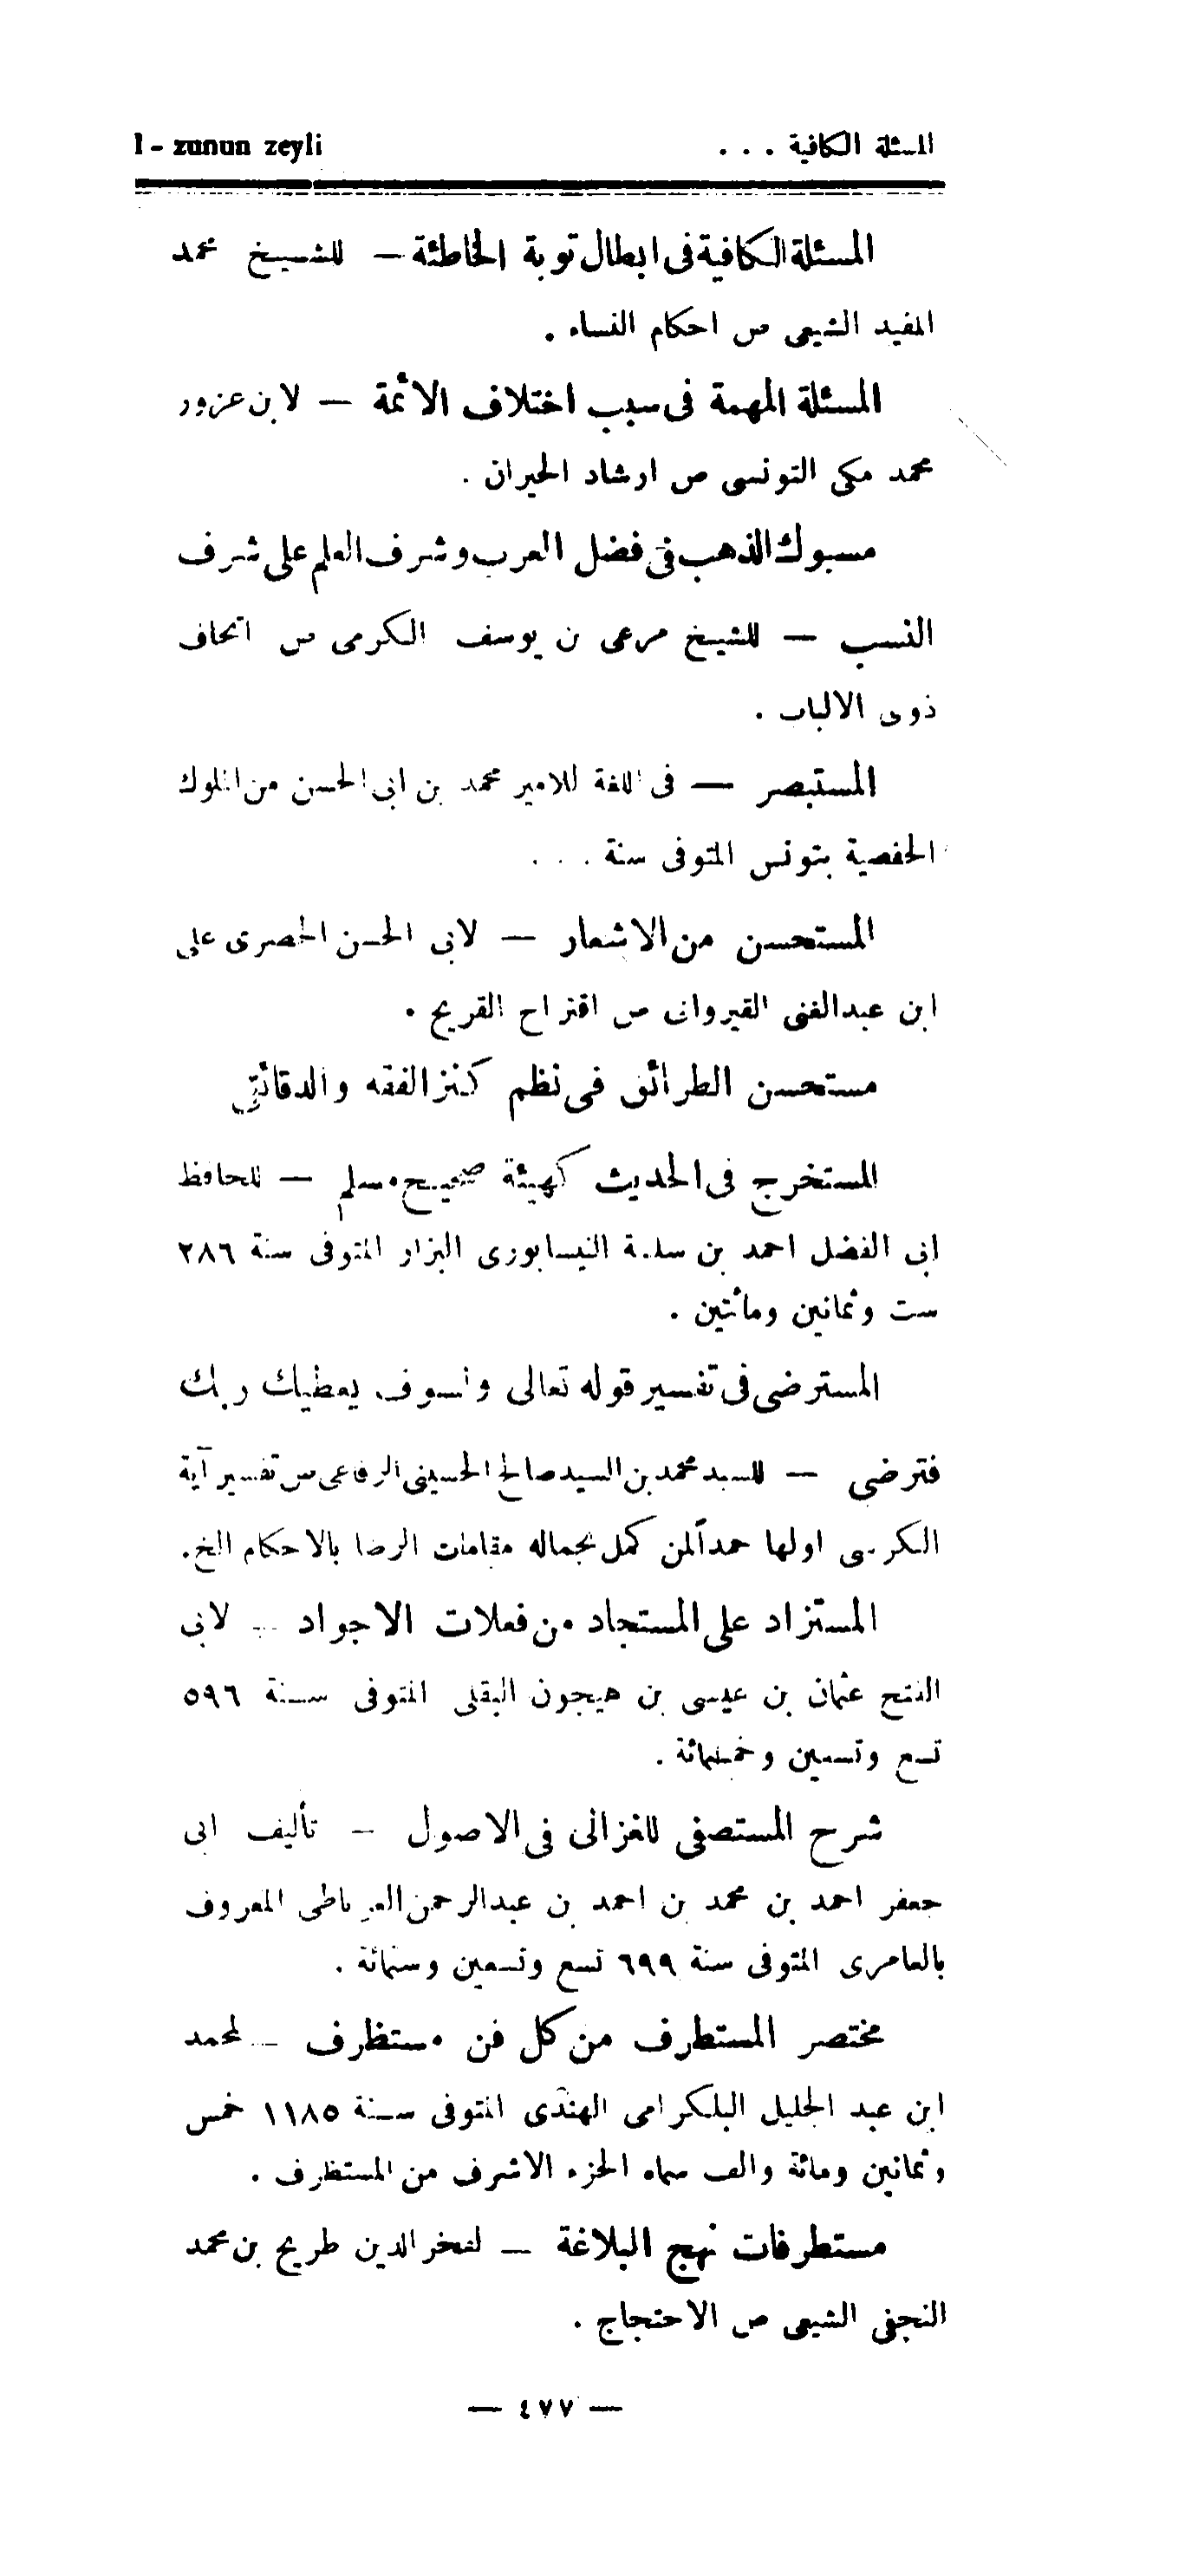 المسئلة الكافية . . . l - zunun zeyli
المسئلة الكافية فى ابطال توبة الخاطئة — للشيخ محمد
المفيد الشيعى ص احكام النساء .
المسئلة المهمة فى سبب اختلاف الائمة — لابن عزوز
محمد مكى التونسى ص ارشاد الحيران .
مسبوك الذهب فى فضل العرب وشرف العلم على شرف
النسب — للشيخ مرعى بن يوسف الكرمى ص اتحاف
ذوى الالباب .
المستبصر — فى اللغة للامير محمد بن ابى الحسن من الملوك
الحفصية بتونس المتوفى سنة . . .
المستحسن من الاشعار — لابى الحسن الحصرى على
ابن عبدالغنى القيروانى ص اقتراح القريح .
مستحسن الطرائق فى نظم كنز الفقه والدقائق
المستخرج فى الحديث كهيئة صحيح مسلم — للحافظ
ابى الفضل احمد بن سلمة النيسابورى البزار المتوفى سنة ٢٨٦
ست وثمانين ومأتين .
المسترضى فى تفسير قوله تعالى ولسوف يعطيك ربك
فترضى — للسيد محمد بن السيد صالح الحسينى الرفاعى ص تفسير آية
الكرسى اولها حمداً لمن كمل بجماله مقامات الرضا بالاحكام الخ.
المستزاد على المستجاد من فعلات الاجواد — لابى
الفتح عثمان بن عيسى بن هيجون البقلى المتوفى سنة ٥٩٦
تسع وتسعين وخمسمائة .
شرح المستصفى للغزالى فى الاصول — تأليف ابى
جعفر احمد بن محمد بن احمد بن عبدالرحمن الغرناطى المعروف
بالعامرى المتوفى سنة ٦٩٩ تسع وتسعين وستمائة .
مختصر المستطرف من كل فن مستظرف — لمحمد
ابن عبد الجليل البلكرامى الهندى المتوفى سنة ١١٨٥ خمس
وثمانين ومائة والف سماه الجزء الاشرف من المستظرف .
مستطرفات نهج البلاغة — لفخرالدين طريح بن محمد
النجفى الشيعى ص الاحتجاج .
— ٤٧٧ —